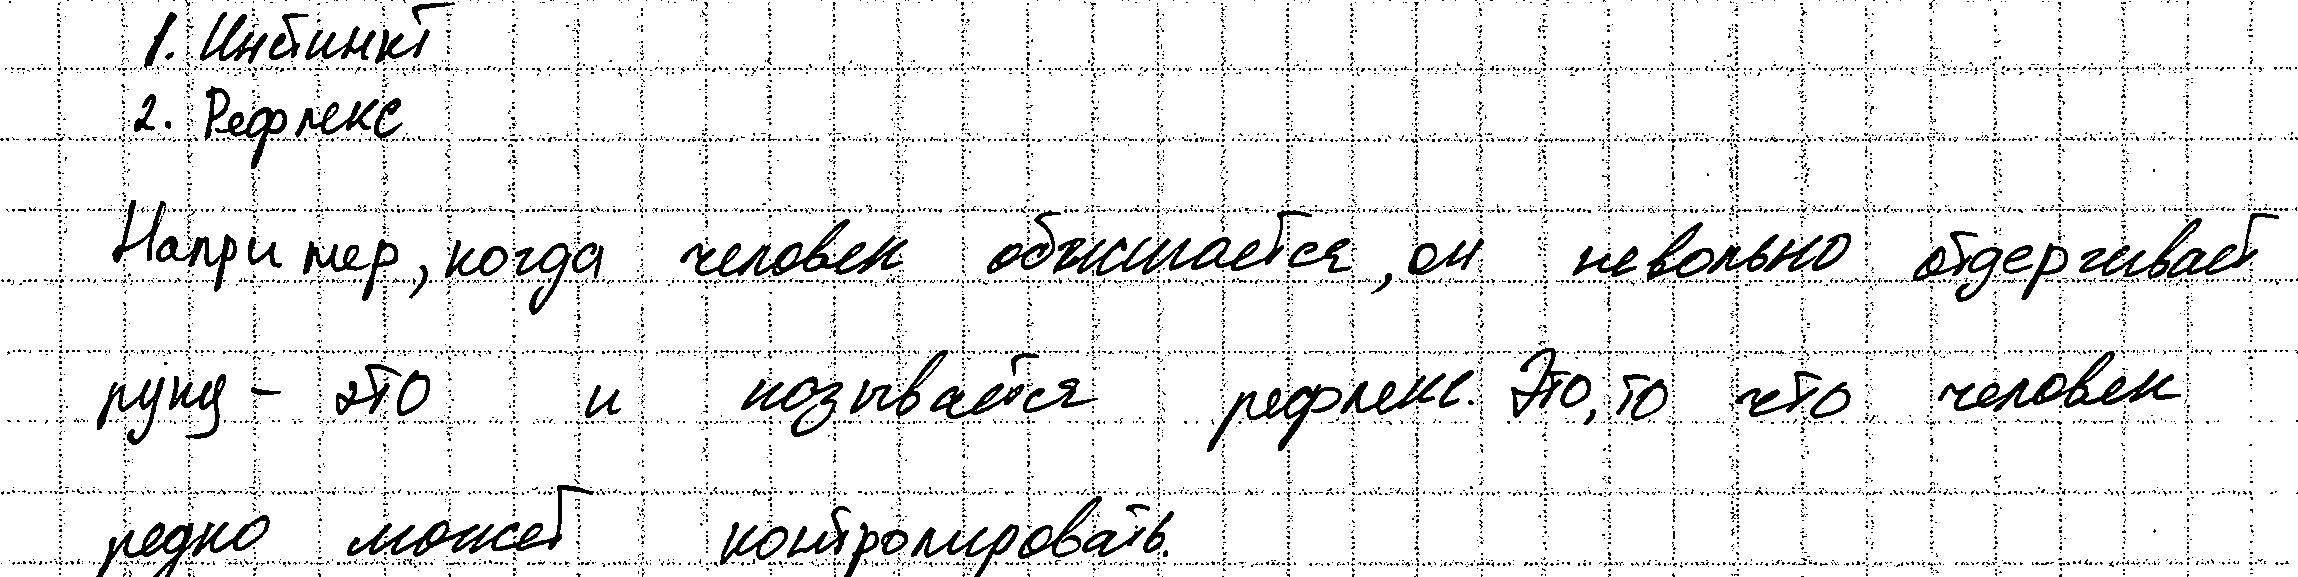 1. Инстинкт
2. Рефлекс
Например, когда человек обжигается, он невольно отдергивает
руку - это и называется рефлекс. Это, то что человек
редко может контролировать.